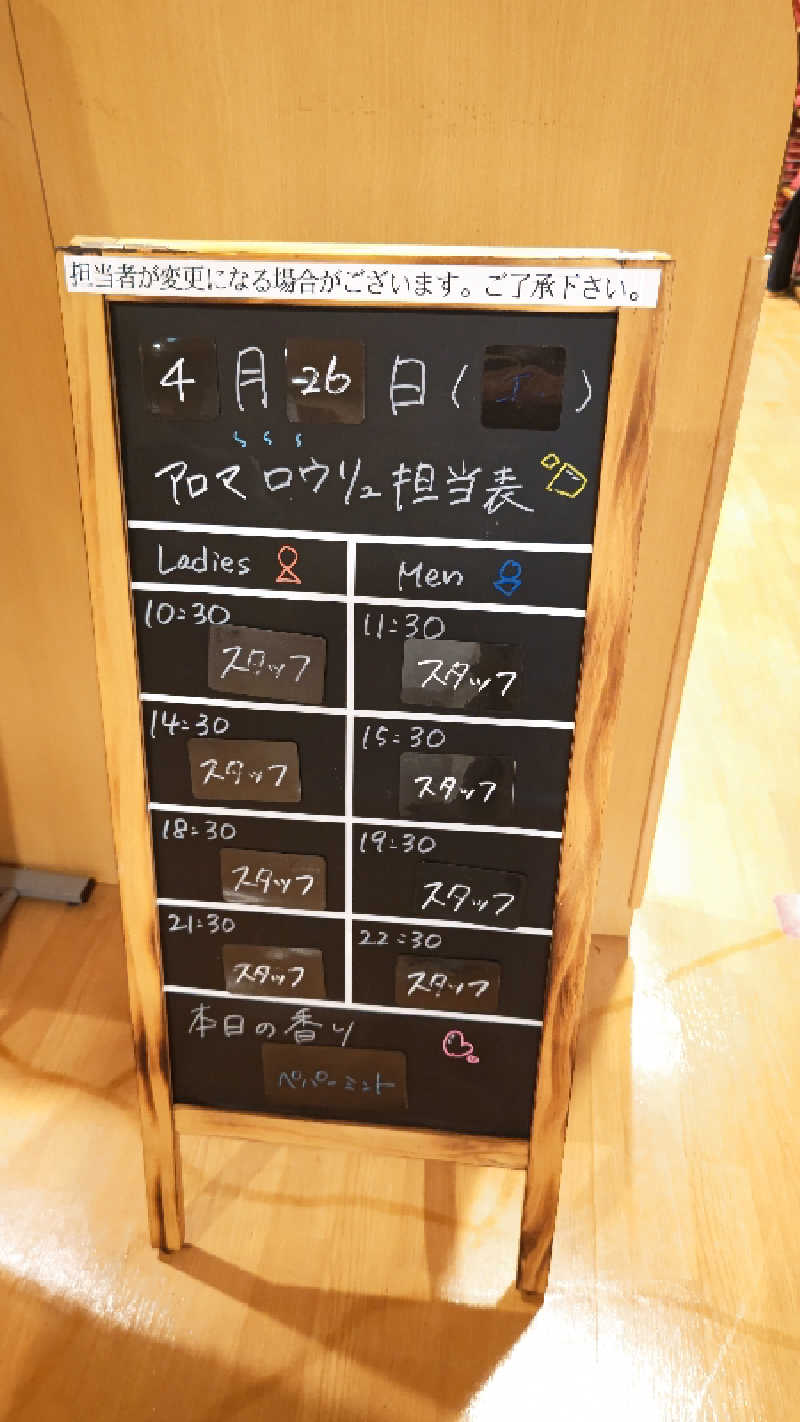 担当者が変更になる場合がございます。ご了承下さい。
4月26日( )
アロマロウリュ担当表
Ladies Men
10:30 11:30
スタッフ スタッフ
14:30 15:30
スタッフ スタッフ
18:30 19:30
スタッフ スタッフ
21:30 22:30
スタッフ スタッフ
本日の香り
ペパーミント